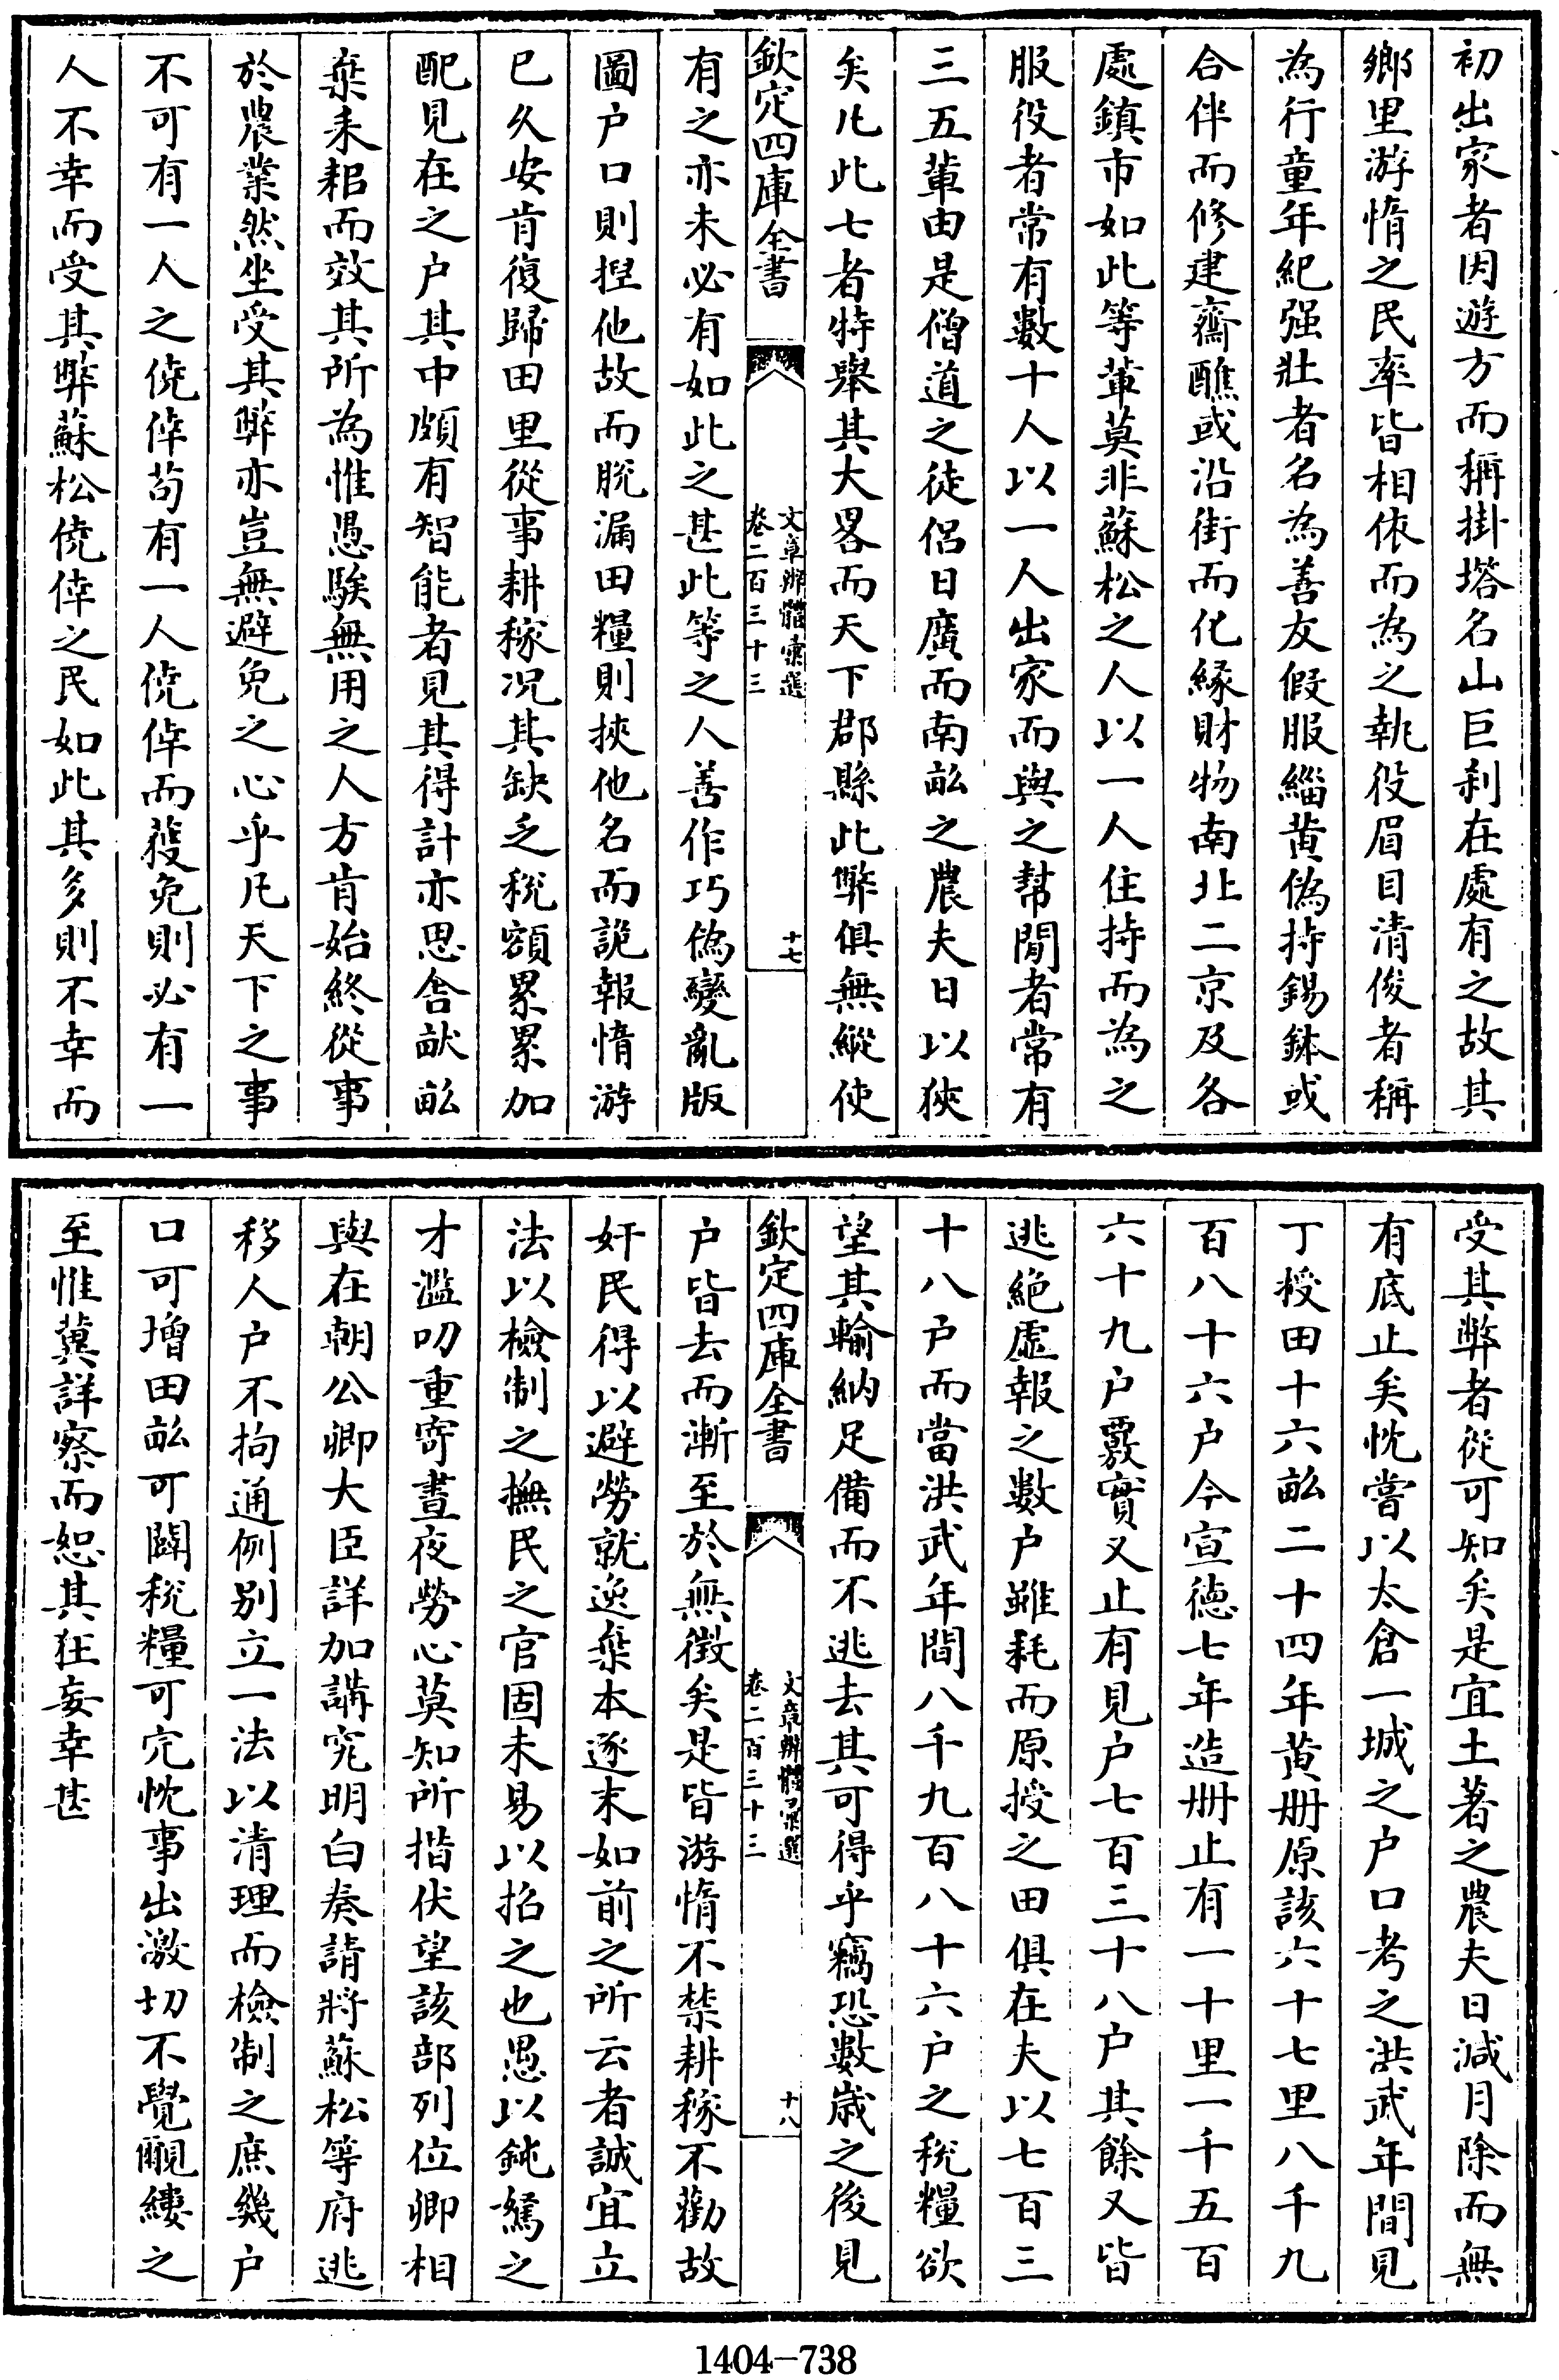 初出家者因遊方而稱掛塔名山巨刹在處有之故其
鄉里游惰之民率皆相依而為之執役眉目清俊者稱
為行童年紀强壯者名為善友假服緇黃偽持錫鉢或
合伴而修建齋醮或沿街而化緣財物南北二京及各
處鎮市如此等輩莫非蘇松之人以一人住持而為之
服役者常有數十人以一人出家而與之幇閒者常有
三五輩由是僧道之徒侣日廣而南畝之農夫日以狹
矣凡此七者特舉其大畧而天下郡縣此弊俱無縱使
欽定四庫全書
文章辨體彙選
卷二百三十三
十七
有之亦未必有如此之甚此等之人善作巧偽變亂版
圖户口則揑他故而脫漏田糧則挾他名而詭報惰游
已久安肯復歸田里從事耕稼况其缺乏稅額累累加
配見在之户其中頗有智能者見其得計亦思舎畎畝
棄耒耜而效其所為惟愚騃無用之人方肯始終從事
於農業然坐受其弊亦豈無避免之心乎凡天下之事
不可有一人之僥倖苟有一人僥倖而獲免則必有一
人不幸而受其弊蘇松僥倖之民如此其多則不幸而
受其弊者從可知矣是宜土著之農夫日減月除而無
有底止矣忱嘗以太倉一城之户口考之洪武年間見
丁授田十六畝二十四年黃册原該六十七里八千九
百八十六户今宣徳七年造册止有一十里一千五百
六十九户覈實又止有見户七百三十八户其餘又皆
逃絶虛報之數户雖耗而原授之田俱在夫以七百三
十八户而當洪武年間八千九百八十六户之稅糧欲
望其輸納足備而不逃去其可得乎竊恐數歲之後見
欽定四庫全書
文章辨體彙選
卷二百三十三
十八
户皆去而漸至於無徵矣是皆游惰不禁耕稼不勸故
奸民得以避勞就逸棄本逐末如前之所云者誠宜立
法以檢制之撫民之官固未易以招之也愚以鈍駑之
才濫叨重寄晝夜勞心莫知所措伏望該部列位卿相
與在朝公卿大臣詳加講究明白奏請將蘇松等府逃
移人户不拘通例别立一法以清理而檢制之庶幾户
口可增田畝可闢稅糧可完忱事出激切不覺覼縷之
至惟冀詳察而恕其狂妄幸甚
1404-738